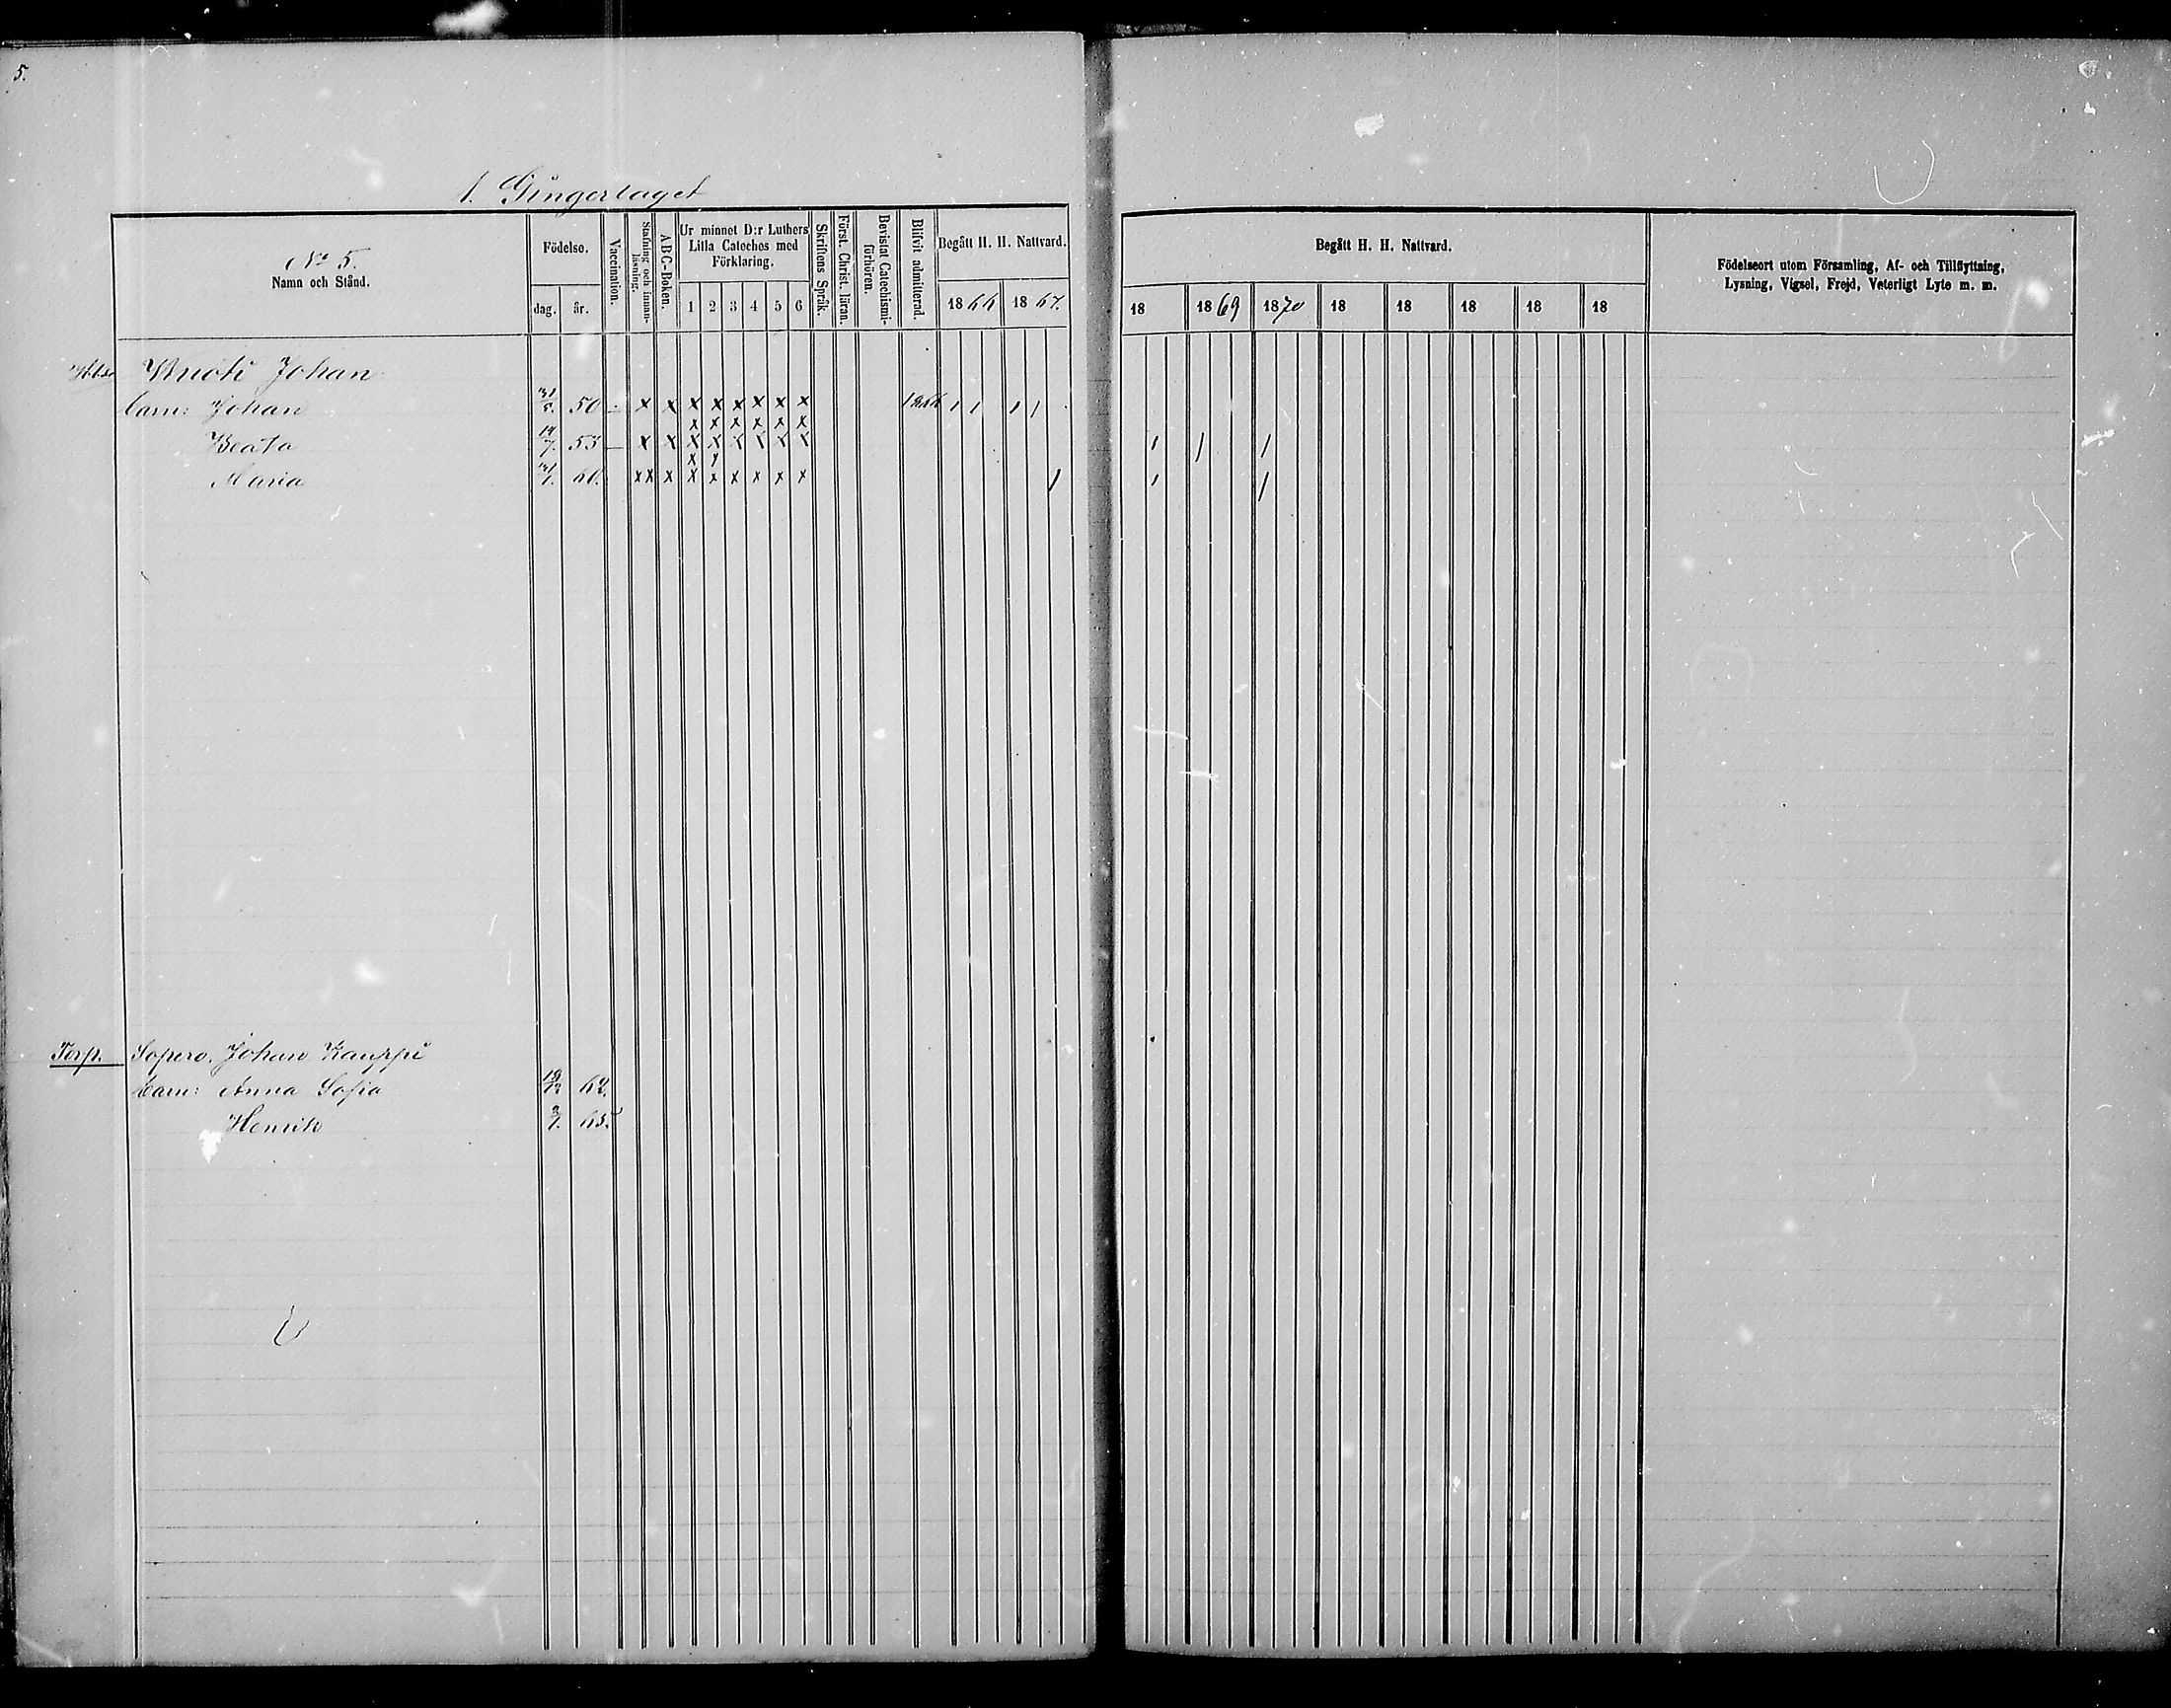 5.
1. Gungerlaget
No 5.
Namn och Stånd.
Födelse.
dag. år.
Vaccination.
Stafning och innanläsning.
ABC-Boken.
Ur minnet D:r Luthers
Lilla Cateches med
Förklaring.
1 2 3 4 5 6
Skriftens Språk.
Först. Christ. läran.
Bevistat Catechismi-
förhören.
Blifvit admitterad.
Begått H. H. Nattvard.
18 66 18 67.
Begått H. H. Nattvard.
18 18 69 18 70 18 18 18 18 18
Födelseort utom Församling, Af- och Tillflyttning,
Lysning, Vigsel, Frejd, Veterligt Lyte m. m.
Johan
barn: Johan 31/5. 50 – x x x x x x x x 1866 1 1 1 1
x x x x x x
Beata 14/7. 53 – x x x x x x x x 1 1 1
x x
Maria 31/1. 60. xx x x x x x x x 1 1 1
Torp. Johan Kauppi
barn: Anna Sofia 19/12 62.
Henrik 2/7. 65.